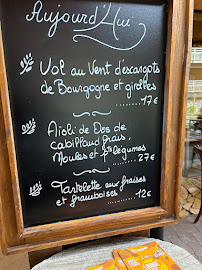 Aujourd'Hui
Vol au Vent d'escargots
de Bourgogne et girolles
17€
Aïoli de Dos de
cabillaud frais,
Moules et pts légumes
27€
Tartelette aux fraises
et framboises 12€